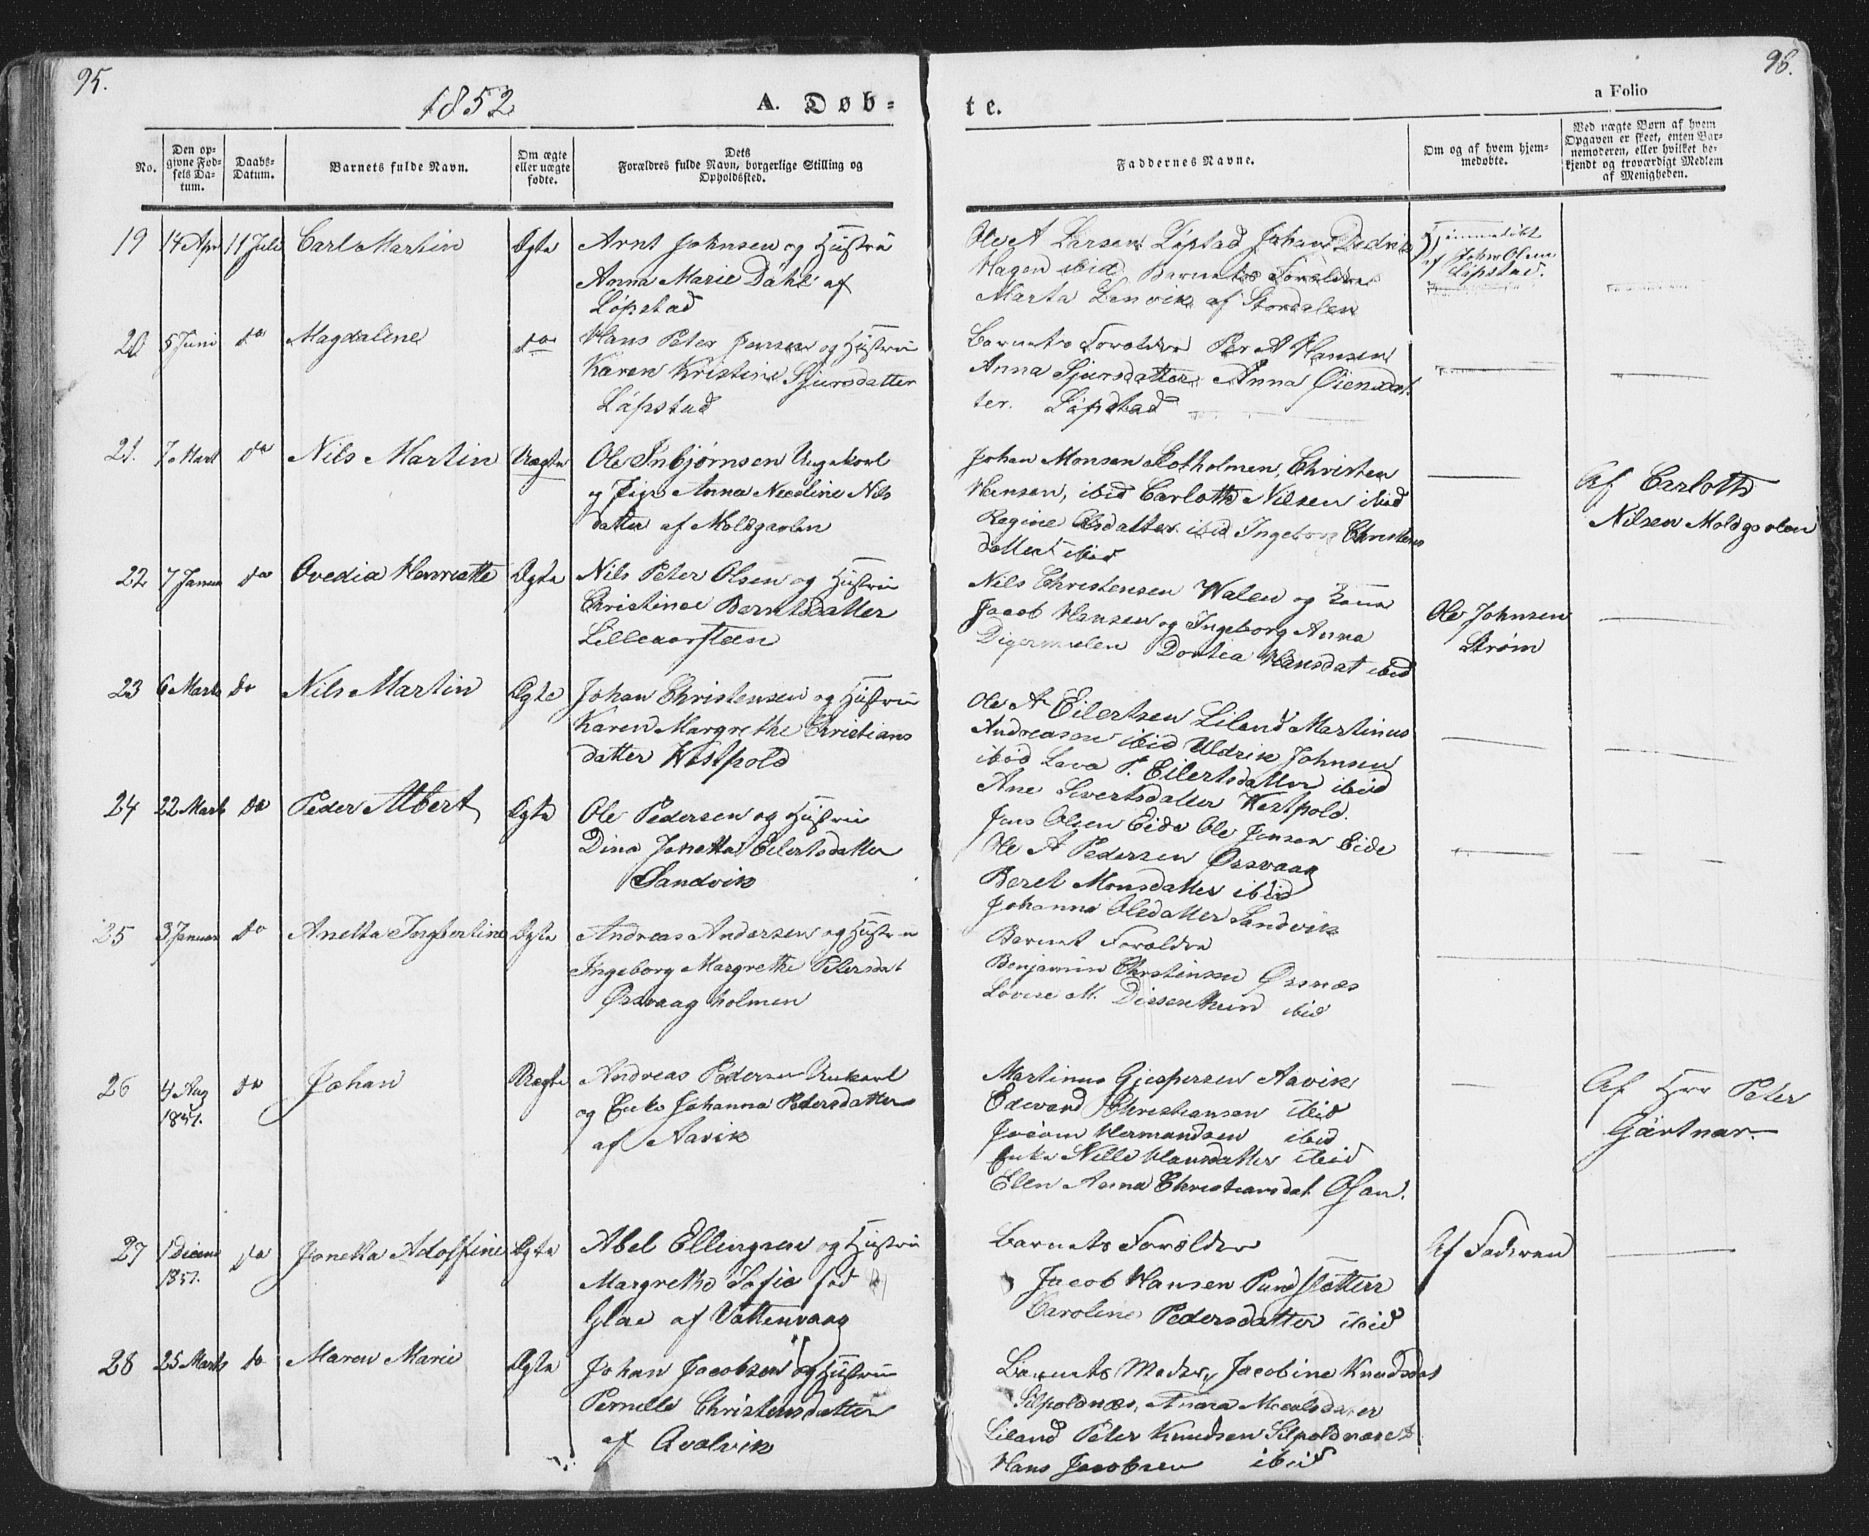 95.
1852
A. Døb-
No.
Den op-
givne Fød-
sels Da-
tum.
Daabs-
Datum.
Barnets fulde Navn.
Om ægte
eller uægte
fødte.
Dets
Forældres fulde Navn, borgerlige Stilling og
Opholdssted.
19 14 Apr 11 Juli Carl Martin Ægte Arnt Johnsen og Hustru
Anna Marie Dahl af
Løpstad
20 5 Juni do Magdalene do Hans Peter Jensen og Hustru
Karen Kristine Sjursdatter
Løpstad
21. 7 Mart do Nils Martin Uægte Ole Inbjørnsen Ungekarl
og Pige Anna Nicoline Nils
datter af Moldgaolen
22 7 Januar do Ovedia Henriette Ægte Nils Peter Olsen og Hustru
Christine Berntsdatter
23 6 Marts do Nils Martin Ægte Johan Christensen og Hustru
Karen Margrethe Christians
datter Westpold
24 22 Marts do Peder Albert Ægte Ole Pedersen og Hustru
Dina Jonetta Eilertsdatter
Sandvik
25 3 Januar do Anetta Ingbertine Ægte Andreas Andersen og Hustru
Ingeborg Margrethe Petersdat
Øssvaagholmen
26 4 Aug do Johan Uægte Andreas Pedersen Unkarl
1851. og Enke Johanna Pedersdatter
af Aavik
27 1 Decem do Jonetta Adolfine Ægte Abel Ellingsen og Hustru
1851. Margrethe Sofie fød
Glae af Vattenvaag
28 25 Marts do Maren Marie Ægte Johan Jacobsen og Hustru
Pernelle Christensdatter
af Qvalvik
96.
a Folio
te.
Faddernes Navne.
Om og af hvem hjem-
medøbte.
Ved uægte Børn af hvem
Opgaven er skeet, enten Bar-
nemoderen, eller hvilket be-
kjendt og troværdigt Medlem
af Menigheden.
Ole A Larsen Løpstad Johan Dedrik
Hagen ibid Barnets Forældre
Marta Lenvik af Stordalen
af John Olsen
Løpstad.
Barnets Forældre Per A Hansen
Anna Sjursdatter Anna Øiensdat
ter. Løpstad
Johan Monsen Kotholmen, Christen
Hansen, ibid Carloth Nilsen ibid
Regine Olsdatter ibid Ingeborg Christens
datter ibid
Af Carloth
Nilsen Moldgaolen
Nils Christensen Walen og Kona
Jacob Hansen og Ingeborg Anna
Digermulen Dortea Hansdat ibid
Ole Johnsen
Strøm
Ole A Eilertsen Liland Martinus
Andreasen ibid Uldrik Johnsen
ibid Lava P. Eilertsdatter ibid
Ane Sivertsdatter Westpold.
Jens Olsen Eide Ole Jensen Eide
Ole A Pedersen Øssvaag
Beret Monsdatter ibid
Johanna Olsdatter Sandvik
Barnet Forældre
Benjamin Christensen Øssnæs
Lovise M. Dissenthun ibid
Martinus Gjespersen Aavik
Edevard Christiansen ibid
Jocom Hermandsen ibid
Enke Nelle Hansdatter ibid
Elen Anna Christiansdat Ofan.
Af Hrr Peter
Gärtner
Barnets Forældre
Jacob Hansen Pundsletten
Caroline Pedersdatter ibid
Af Faderen
Barnets Moder, Jacobine Knudsdat
Silpoldnæs, Anna
Liland Peter Knudsen Silpoldnæset
Hans Jacobsen ibid